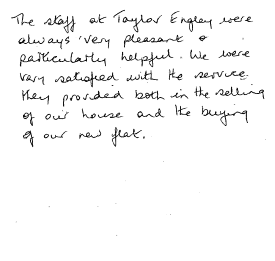 The staff at Taylor Engley were
always very pleasant &
particularly helpful. We were
very satisfied with the service
they provided both in the selling
of our house and the buying
of our new flat.